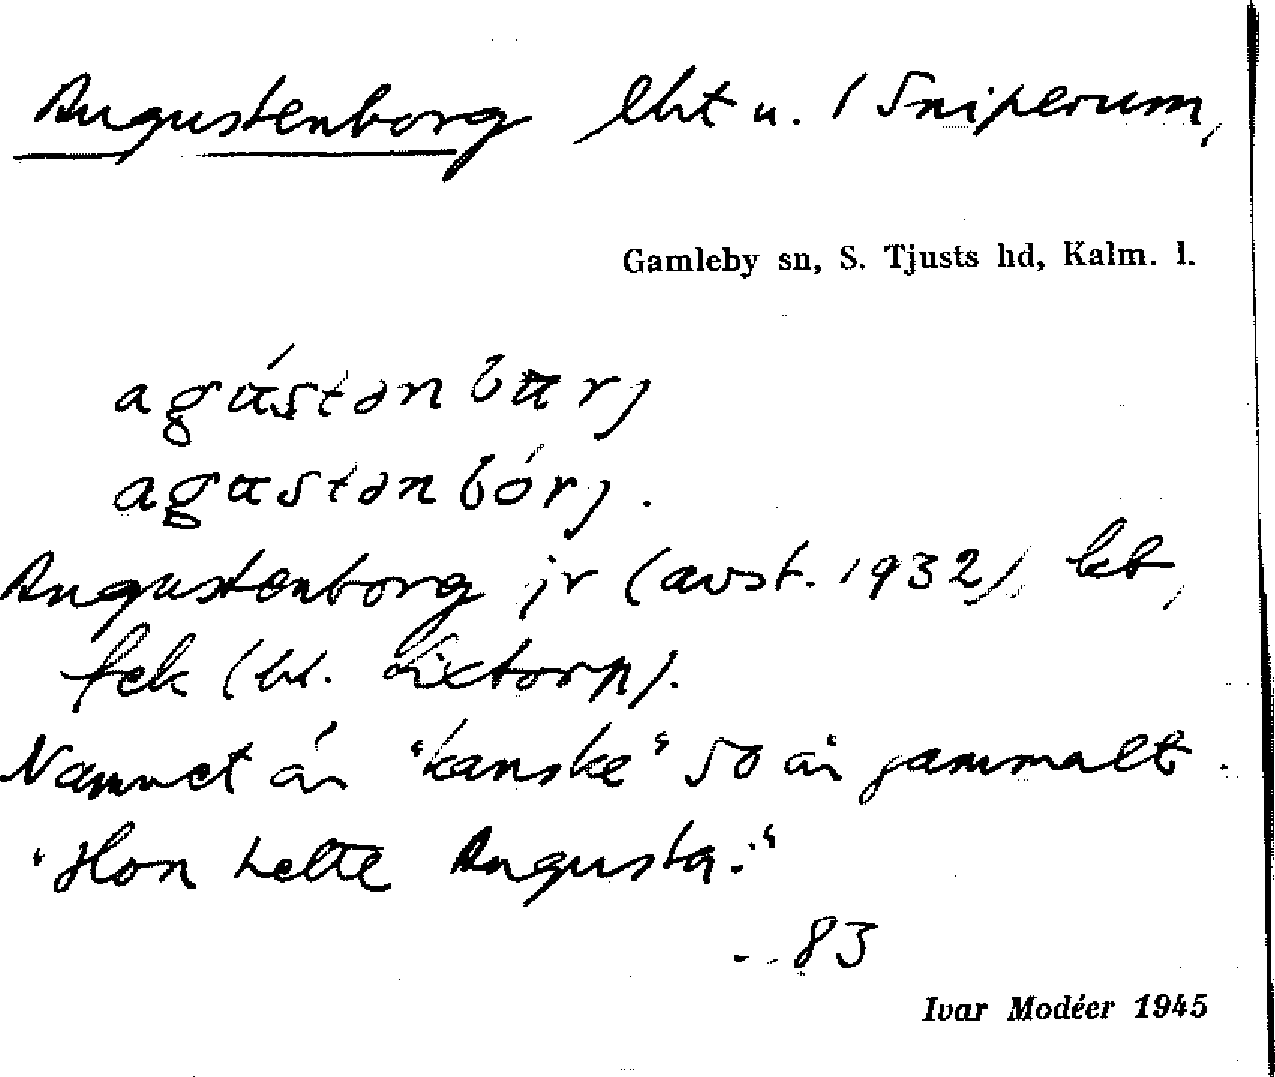 Augustenborg lht u. 1 Sniperum,
Gamleby sn, S. Tjusts hd, Kalm. l.
agástənbarj
agastənbórj.
Augustenborg jr (avst. 1932), kb,
fek (bl. Lixtorp).
Namnet är "kanske" 50 år gammalt.
"Hon hette Augusta."
83
Ivar Modéer 1945